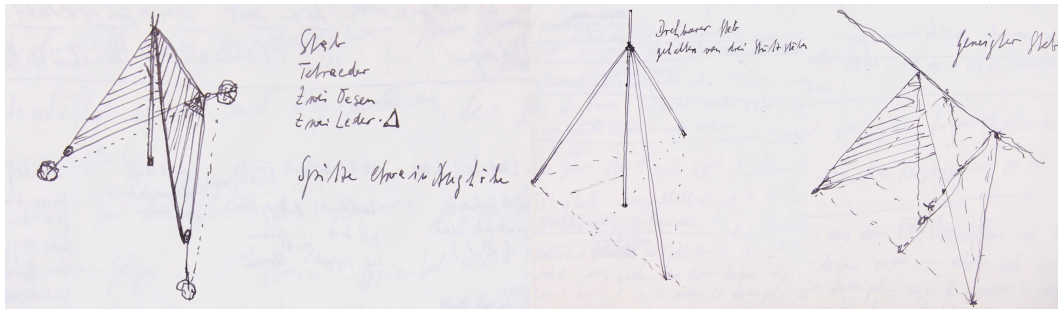 Stab
Tetraeder
Zwei Ösen
Zwei Leder-Δ
Spitze etwa in Aughöhe
Drehbarer Stab
gehalten von drei Stützstäben
Geneigter Stab